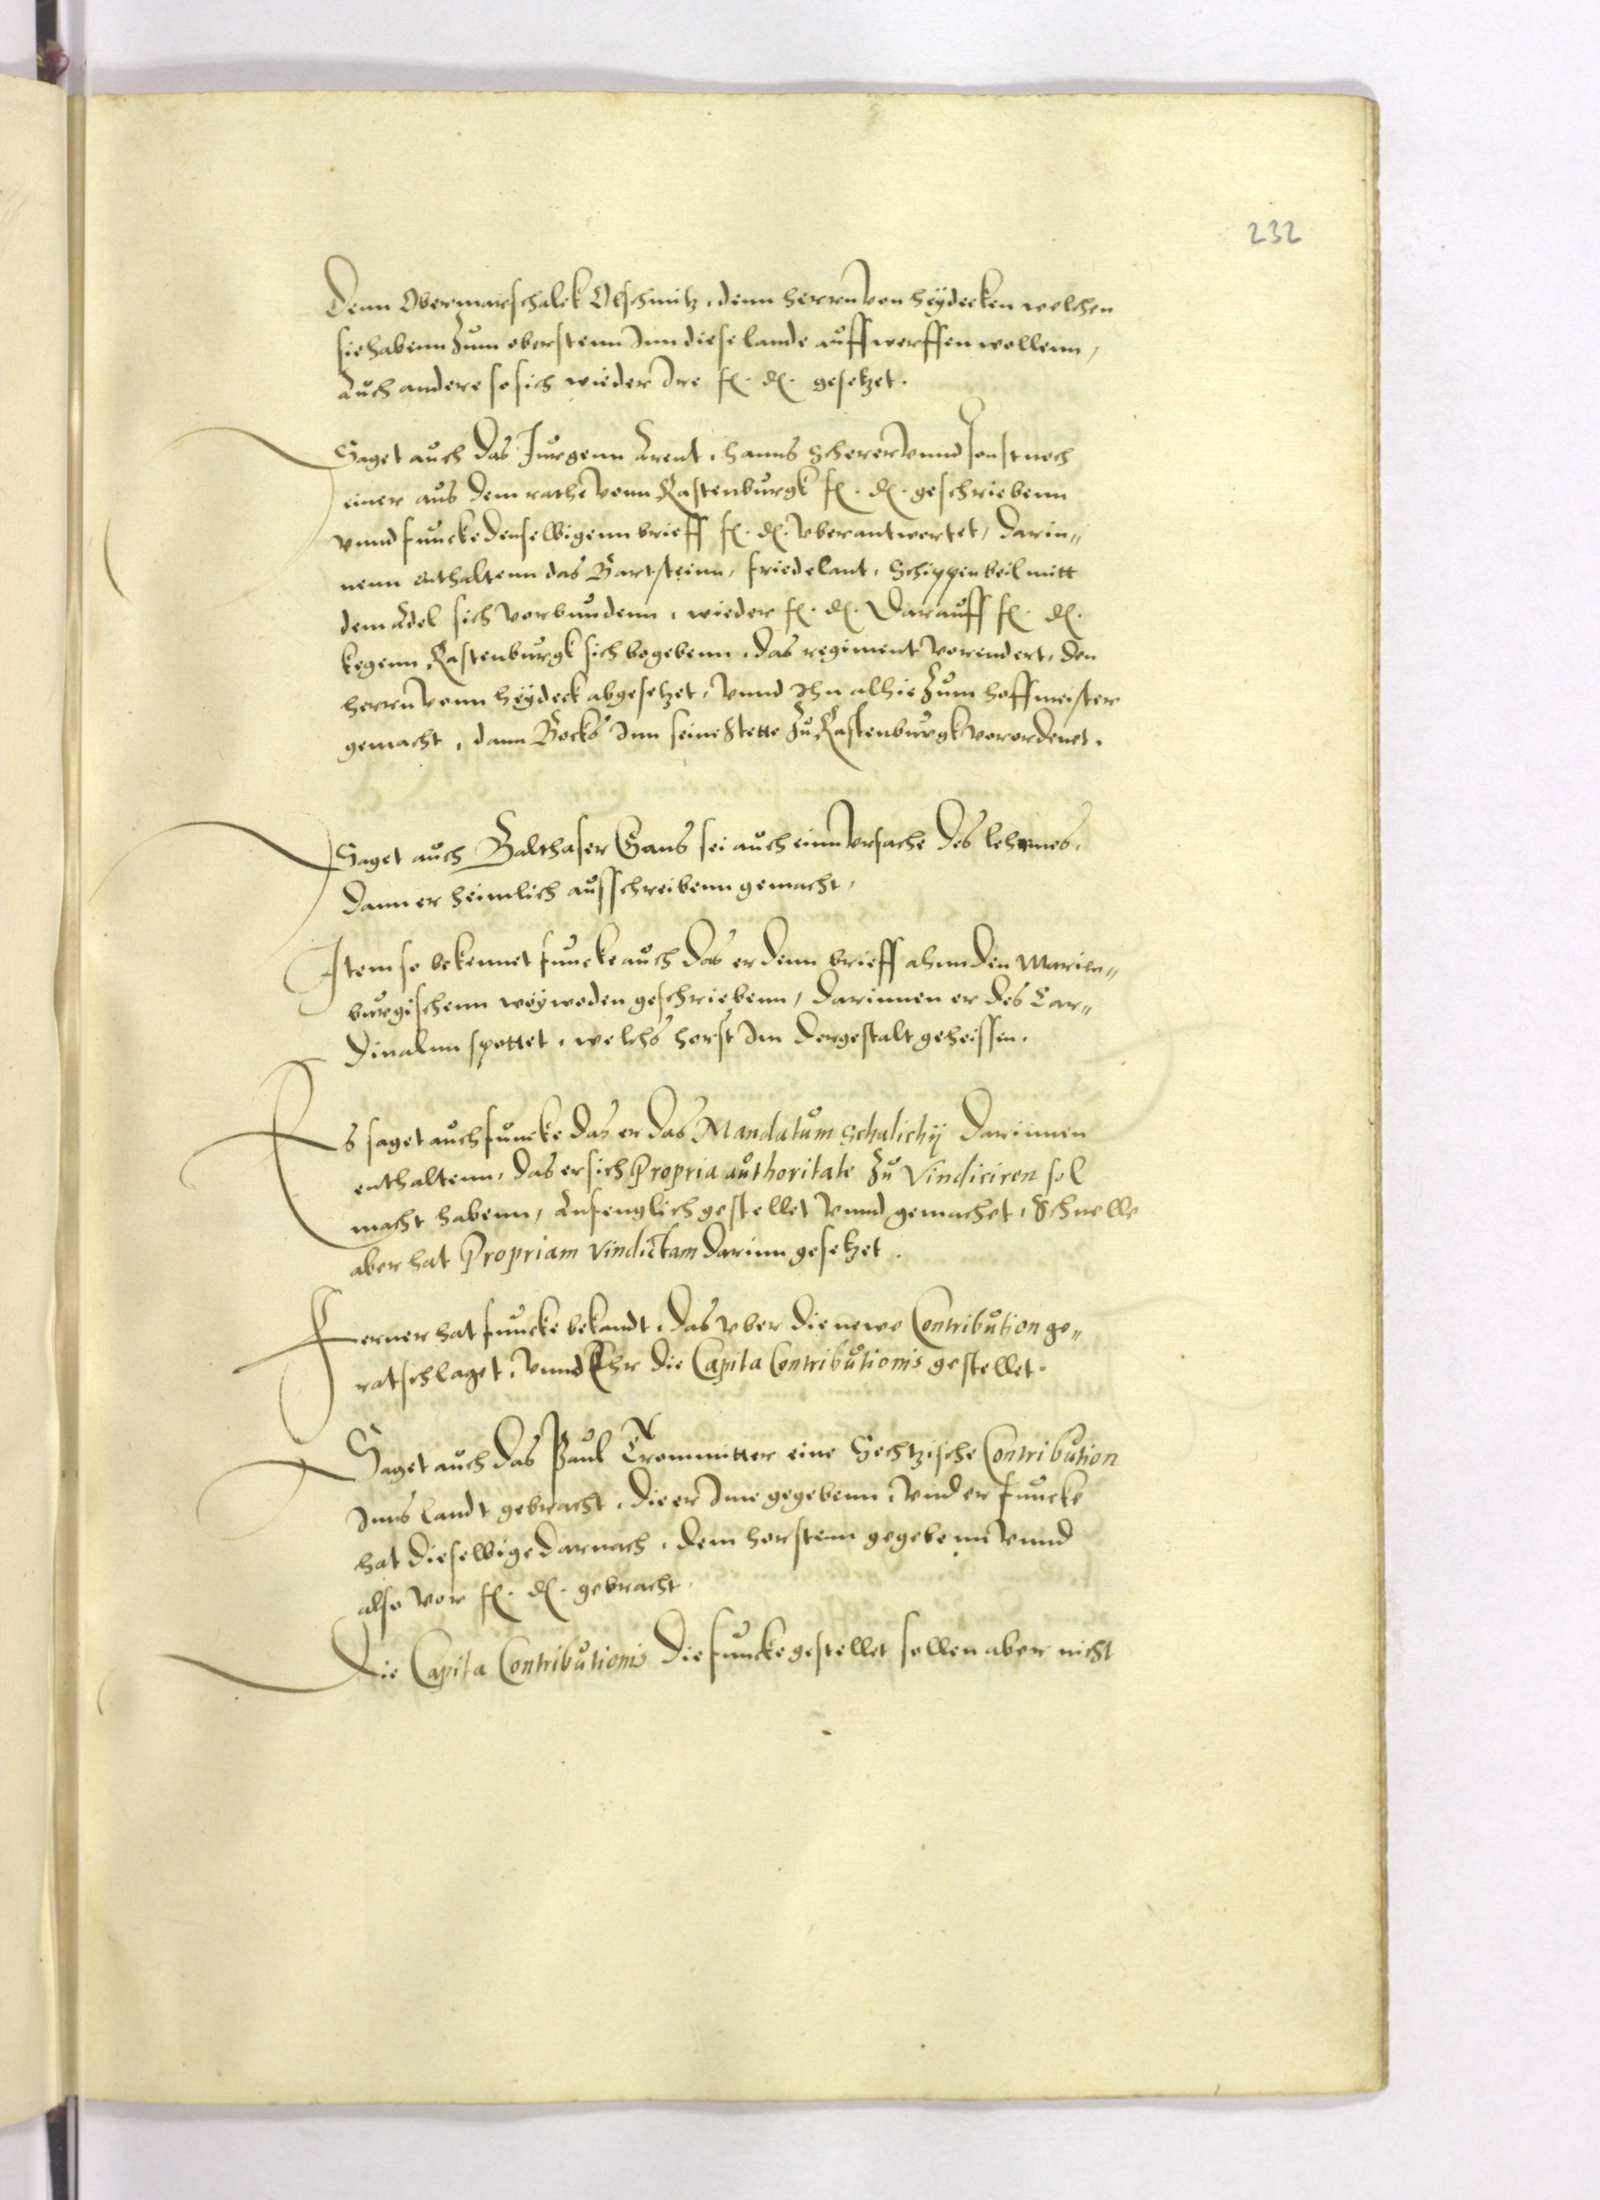 232
Denn Obermarschalck Olschnitz, denn herrn von heydecken welchen
sie habenn zum oberstenn Inn diese lande auffwerffen wollenn,
Auch andere so sich wieder Ire fl. dl. gesetzet.
Saget auch das Jurgenn Arent, hanns Scherer vnnd sonst noch
einer aus dem rathe vonn Rastenburgk fl. dl. geschriebenn
vnnd funcke denselbigenn brieff fl. dl. vberantwortet, darin„
nenn enthaltenn das Bartsteinn, friedelant, Schippenbeil mitt
dem Adel sich vorbundenn, wieder fl. dl. darauff fl. dl.
kegenn Rastenburgk sich begebenn, das regiment vorendert, den
herrn vonn heydeck abgesetzet, vnnd Ihn alhie zum hoffmeister
gemacht, dann Bocks Inn seine stette zu Rastenburgk vorordenet.
Saget auch Balthaser Gans sei auch einn vrsache des lehrmes,
dann er heimlich ausschreibenn gemacht,
Item so bekennet funcke auch das er denn brieff ahnn den Marien„
burgischenn woywoden geschriebenn, darinnen er des Car„
dinalnn spottet, welchs horst Im dergestalt geheissen.
Es saget auch funcke das er das Mandatum Schalichij darinnen
enthaltenn, das er sich Propria authoritate zu Vindiciren sol
macht habenn, Anfenglich gestellet vnnd gemachet, Schnelle
aber hat Propriam vindictam darinn gesetzet.
Ferner hat funcke bekandt, das vber die newe Contribution ge„
ratschlaget, vnnd Ehr die Capita Contributionis gestellet.
Saget auch das Paul Trommitter eine Sechzische Contribution
Inns landt gebracht, die er Ime gegebenn, vnd er funcke
hat dieselbige darnach, dem horstenn gegebenn vnnd
also vor fl. dl. gebracht.
Die Capita Contributionis die funcke gestellet sollen aber nicht